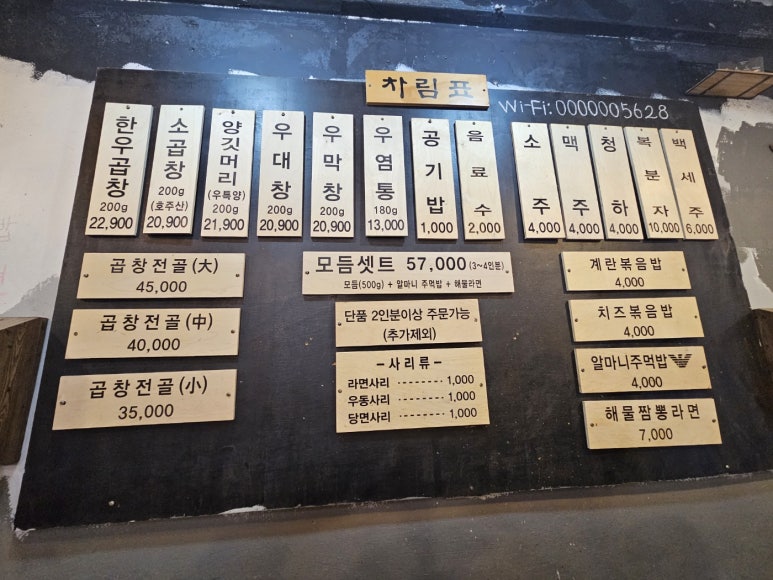 차림표
Wi-Fi: 0000005628
한우곱창
200g
22,900
소곱창
200g
(호주산)
20,900
양깃머리
(우특양)
200g
21,900
우대창
200g
20,900
우막창
200g
20,900
우염통
180g
13,000
공기밥
1,000
음료수
2,000
소주
4,000
맥주
4,000
청하
4,000
복분자
10,000
백세주
6,000
곱창전골(大)
45,000
곱창전골(中)
40,000
곱창전골(小)
35,000
모듬셋트 57,000 (3~4인분)
모듬(500g) + 알마니 주먹밥 + 해물라면
단품 2인분이상 주문가능
(추가제외)
-사리류-
라면사리 -------- 1,000
우동사리 -------- 1,000
당면사리 -------- 1,000
계란볶음밥
4,000
치즈볶음밥
4,000
알마니주먹밥
4,000
해물짬뽕라면
7,000